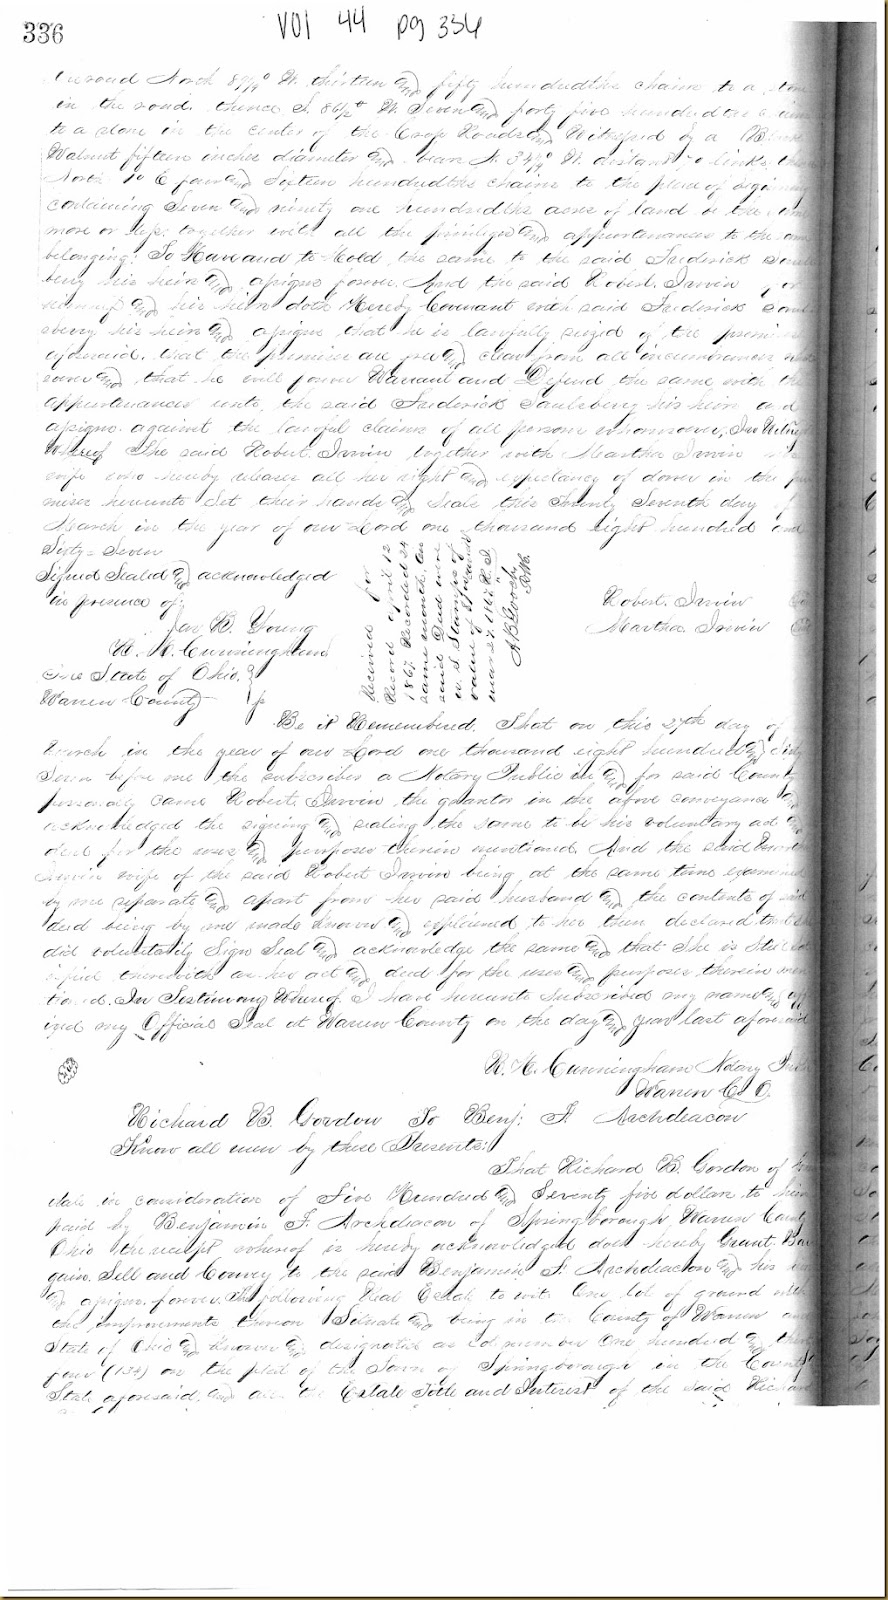 336
Vol 44 pg 336
road North 89 W. thirteen and fifty hundredths chains to a stone
in the road. thence S. 86½ W. Seven and forty five hundredths
to a stone in the center of the Cross Roads and Witnessed by a
Walnut fifteen inches diameter and bears N. 34 W. distant links,
North 1° E four and Sixteen hundredths chains to the place of
containing Seven and ninety one hundredths acres of land be the same
more or less; together with all the privileges and appurtenances to the same
belonging: To Have and to Hold the same to the said Frederick
berry his heirs and assigns forever. And the said Robert. Irwin for
himself and his heirs doth Hereby Covenant with said Frederick
sberry his heirs and assigns that he is lawfully seized of the premises
aforesaid. that the premises are free and clear from all incumbrances
soever and that he will forever Warrant and Defend the same with the
appurtenances unto the said Frederick Saulsberry his heirs and
assigns. against the lawful claims of all persons whomsoever, In Witness
Whereof The said Robert. Irwin together with Martha Irwin his
wife who hereby releases all her right and expectancy of dower in the
mises hereunto Set their hands and Seals this Twenty Seventh day of
March in the year of our Lord one thousand eight hundred and
Sixty-Seven
Signed Sealed and acknowledged
in presence of;
B. Young
Cunningham
The State of Ohio.
Warren County
Received for
Record April 12
1867. Recorded 24
same month. On
said Deed were
U. S. Stamps of
value of
Mar 27. 1867 R. I
Robert. Irwin
Martha. Irwin
Be it Remembered. That on this 27th day of
March in the year of our Lord one thousand eight hundred and Sixty
Seven before me the subscriber a Notary Public in and for said County
personally came Robert. Irwin the grantor in the above conveyance and
acknowledged the signing and sealing the same to be his voluntary act and
deed for the uses and purposes therein mentioned. And the said Martha
Irwin wife of the said Robert Irwin being at the same time examined
by me separate and apart from her said husband and the contents of said
deed being by me made known and explained to her then declared that she
did voluntarily Sign Seal and acknowledge the same and that She is Still
isfied therewith as her act and deed for the uses and purposes therein men
tioned. In Testimony Whereof I have hereunto Subscribed my name and aff
ixed my Official Seal at Warren County on the day and year last aforesaid
Seal
R. H. Cunningham Notary Public
Warren Co O.
Richard B. Gordon To Benj: F. Archdeacon
Know all men by these Presents:
That Richard B. Gordon of
in consideration of Five Hundred and Seventy five dollars to him
paid by Benjamin F. Archdeacon of Springborough Warren County
Ohio the receipt whereof is hereby acknowledged does hereby Grant. Bar
gain. Sell and Convey to the said Benjamin F. Archdeacon and his heirs
and assigns. forever. The following Real Estate to wit: One lot of ground with
the improvements thereon Situate and being in the County of Warren and
State of Ohio and Known and designated as Lot number One hundred and thirty
four (134) on the plat of the Town of Springborough in the County &
State aforesaid. and all the Estate Title and Interest of the said Richard